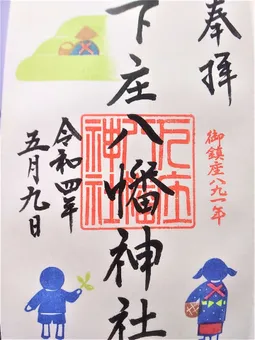 奉拝
御鎮座八九一年
下庄八幡神社
下庄八幡神社
令和四年
五月九日